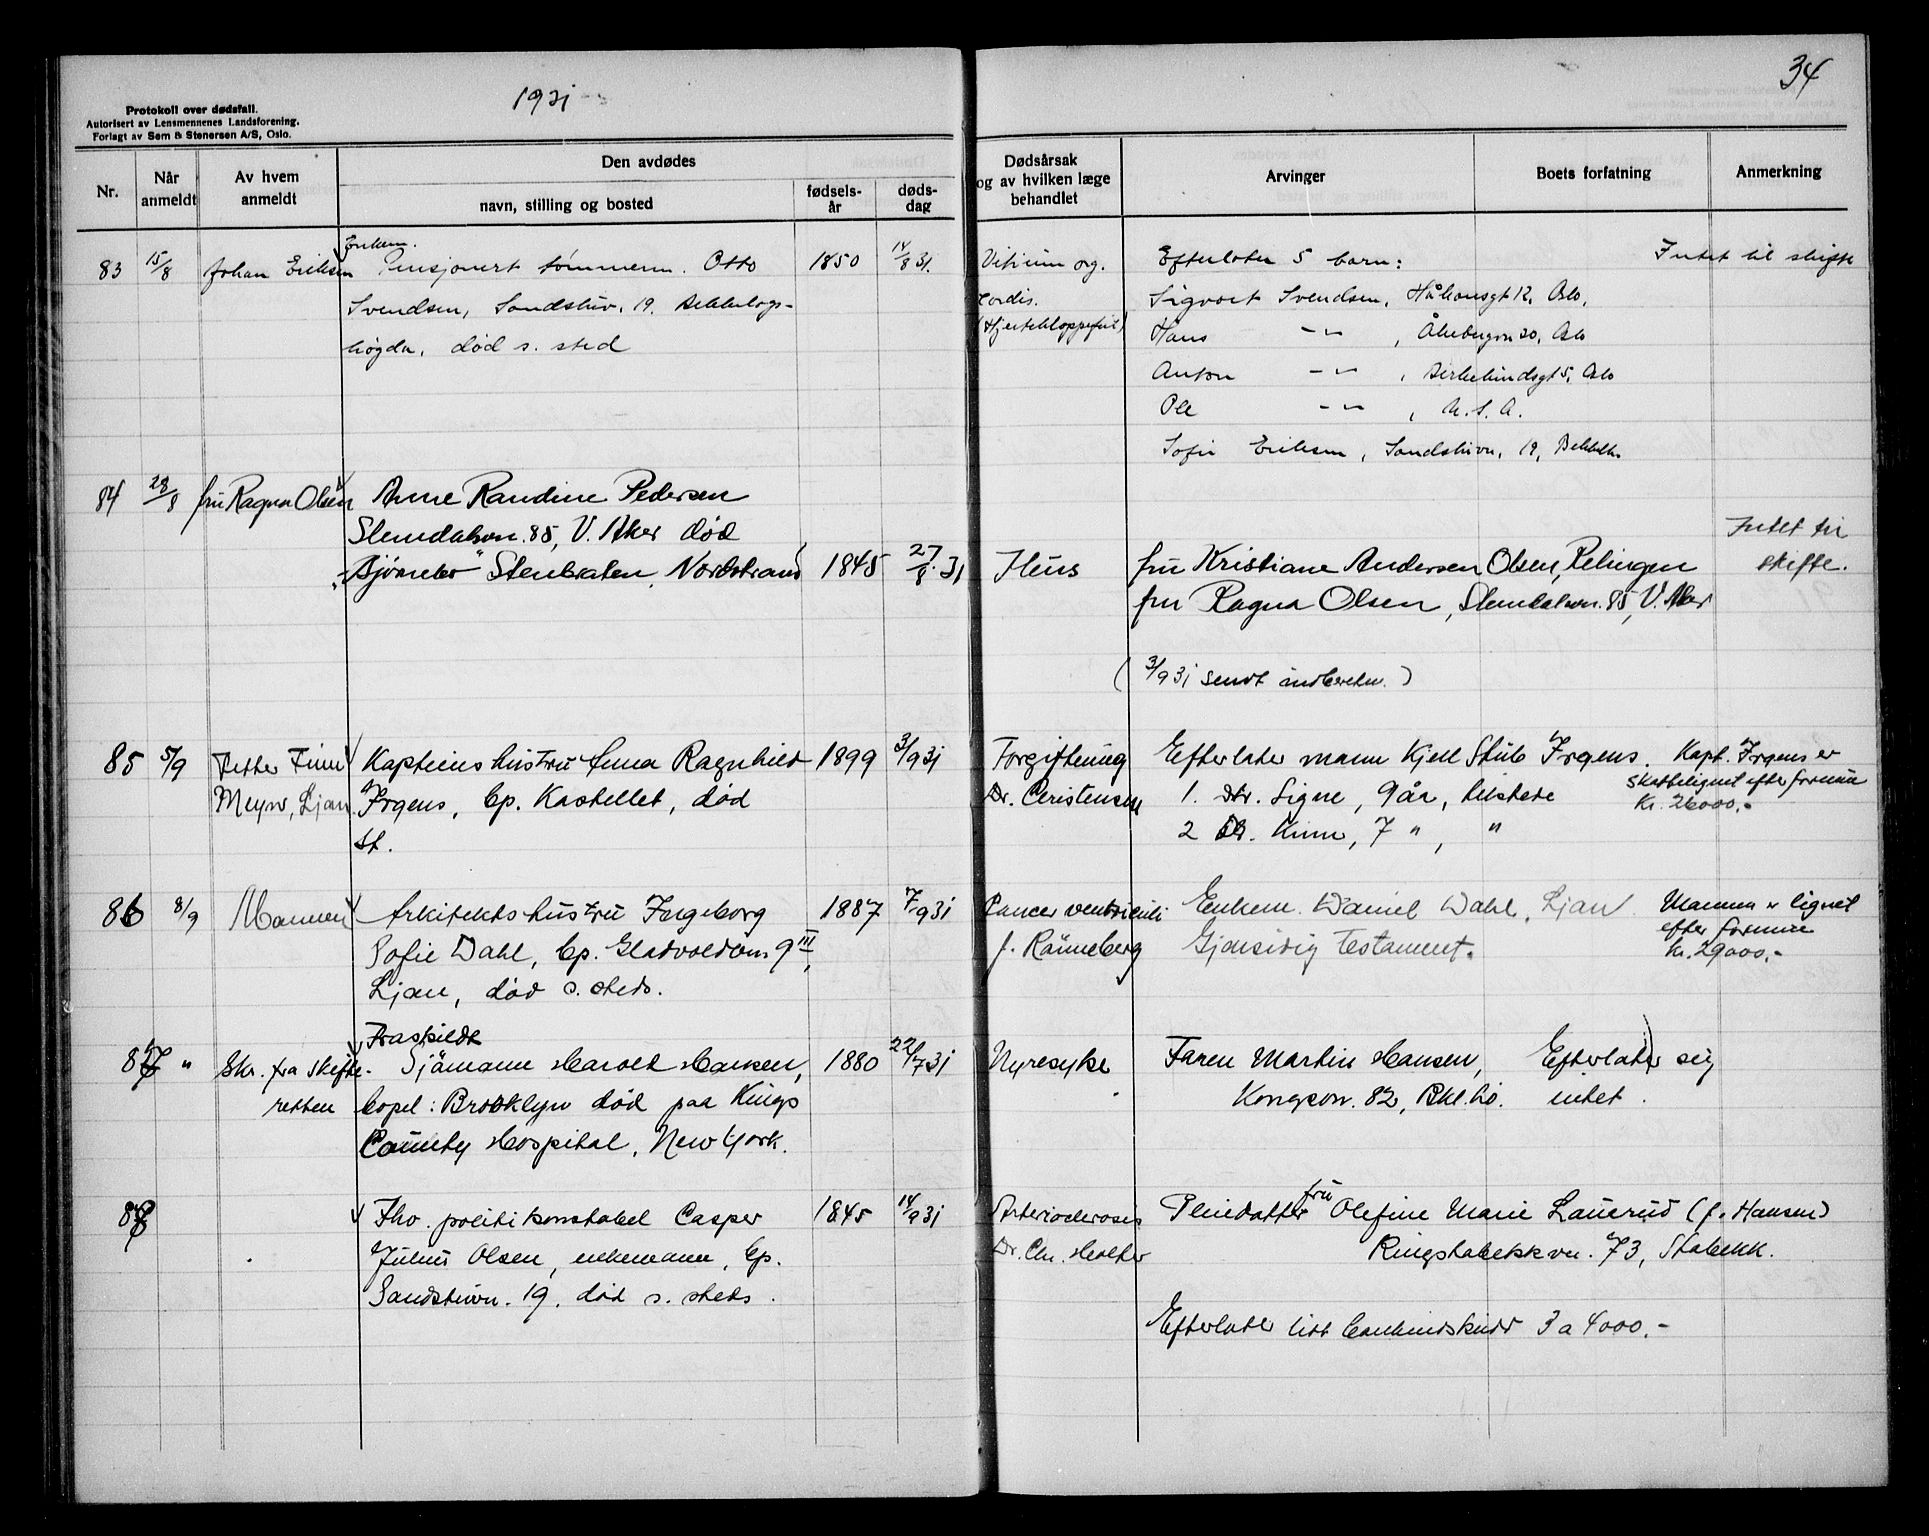 1931
34
Protokoll over dødsfall.
Autorisert av Lensmennenes Landsforening.
Forlagt av Sem & Stenersen A/S, Oslo.
Nr.
Når anmeldt
Av hvem anmeldt
Den avdødes
navn, stilling og bosted
fødsels-år
døds-dag
Dødsårsak og av hvilken læge behandlet
Arvinger
Boets forfatning
Anmerkning
Enkem.
83 15/8 Johan Eriksen Pensjonert tømmerm. Otto 1850 14/8 31. Vitium org. Efterlater 5 barn: Intet til skifte
Svendsen, Sandstuv. 19. Bekkelags- Cordis. Sigvart Svendsen, Håkonsgt 12, Oslo,
høgda, død s. sted (Hjerteklappefeil) Hans -"- , Åkebergvn 20, Oslo
Anton -"- , Birkelundsgt 5, Oslo
Ole -"- , U.S.A.
Sofie Eriksen, Sandstuvn, 19, Bekkelh.
84 28/8 fru Ragna Olsen Anne Randine Pedersen
Slemdalsvn. 85, V. Aker død Intet til
"Bjørnebo" Stenbraten, Nordstrand 1845 27/8 31 fru Kristiane Andersen Olsen, Relingen skifte.
fru Ragna Olsen, Slemdalsvn. 85, V. Aker
(3/9 31 sendt indberetn.)
85 5/9 Petter Finn Kapteins hustru Anna Ragnhild 1899 3/9 31 Forgiftning Efterlater mann Kjell Stub Irgens. Kapt. Irgens er
Meyer, Ljan Irgens, bp. Kastellet, død Dr. Christensen 1. Dtr. Signe, 9 år, tilstede skattelignet efter formue
st. 2 Dtr. , 7 " , " kr. 26000.-
86 8/9 Mannen Arkitekts hustru Ingeborg 1887 7/9 31 Cancer ventriculi Enkem. Daniel Dahl, Ljan Mannen er lignet
Sofie Dahl, bp. Gladvoldvn. 9 III, f. Rönneberg Gjensidig testament. efter formue
Ljan, død s. steds. kr. 29000.-
Fraskildt
87 " Skr. fra skifte- Sjömann Harold Hansen, 1880 22/7 31 Nyresyke Faren Martin Hansen, Efterlater sig
retten bopel: Brooklyn død paa Kings Kongsvn. 82, Bkl.hö. intet.
County Hospital, New York.
88 Fhv. politikonstabel Casper 1845 14/9 31 Arteriosclerosis Pleiedatter fru Olefine Marie Lauerud (f. Hansen)
Julius Olsen, enkemann, bp. Dr. Chr. Holter Ringstabekkvn. 73, Stabekk.
Sandstuvn. 19. død s. steds.
Efterlater litt bankinnskudd 3 a 4000.-